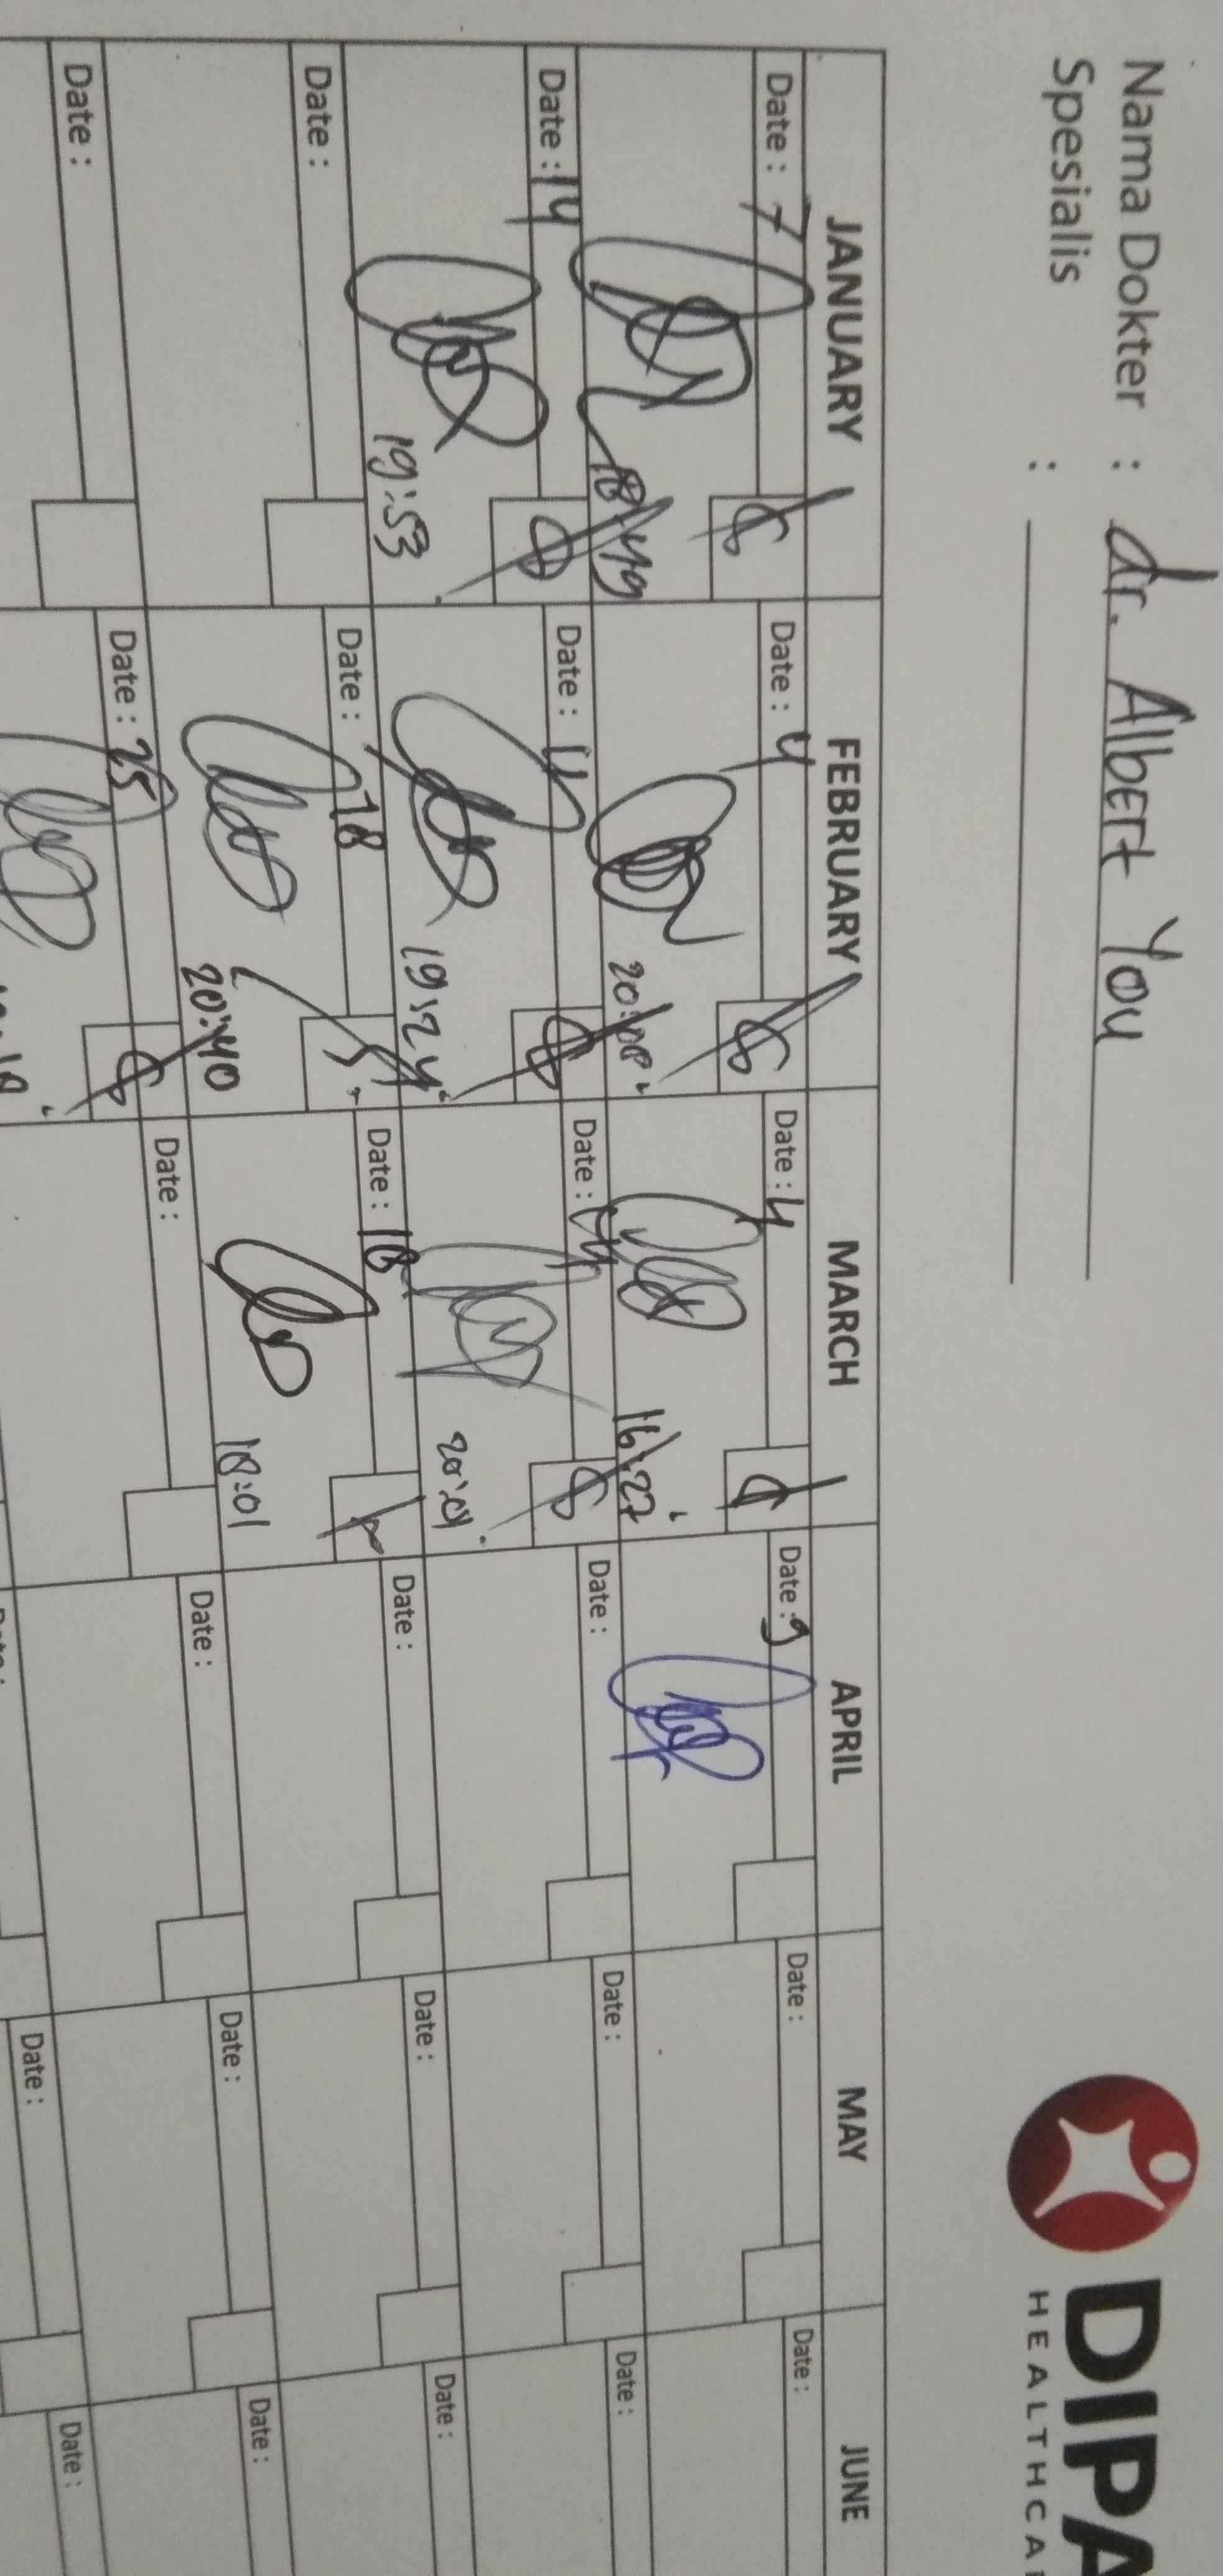 Nama Dokter : dr. Albert You
Spesialis :
DIPA
HEALTHCA
JANUARY FEBRUARY MARCH APRIL MAY JUNE
Date : 7 Date : 4 Date : 4 Date : 9 Date : Date :
18:49 20:08 16:27
Date : 14 Date : 11 Date : Date : Date : Date :
19:53 19:24 20:01
Date : Date : 18 Date : 18 Date : Date : Date :
20:40 18:01
Date : Date : 25 Date : Date : Date : Date :
Date : Date :